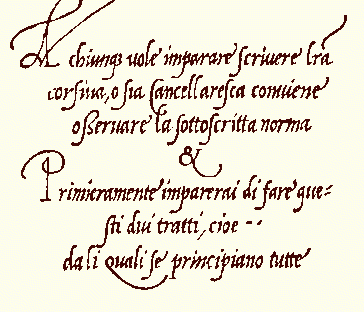 A chiunq3 vole imparare scrivere lr̃a
corsiva, o sia Cancellaresca conviene
osservare la sottoscritta norma
&
Primieramente imparerai di fare que=
sti dui tratti, cioe - -
da li quali se principiano tutte